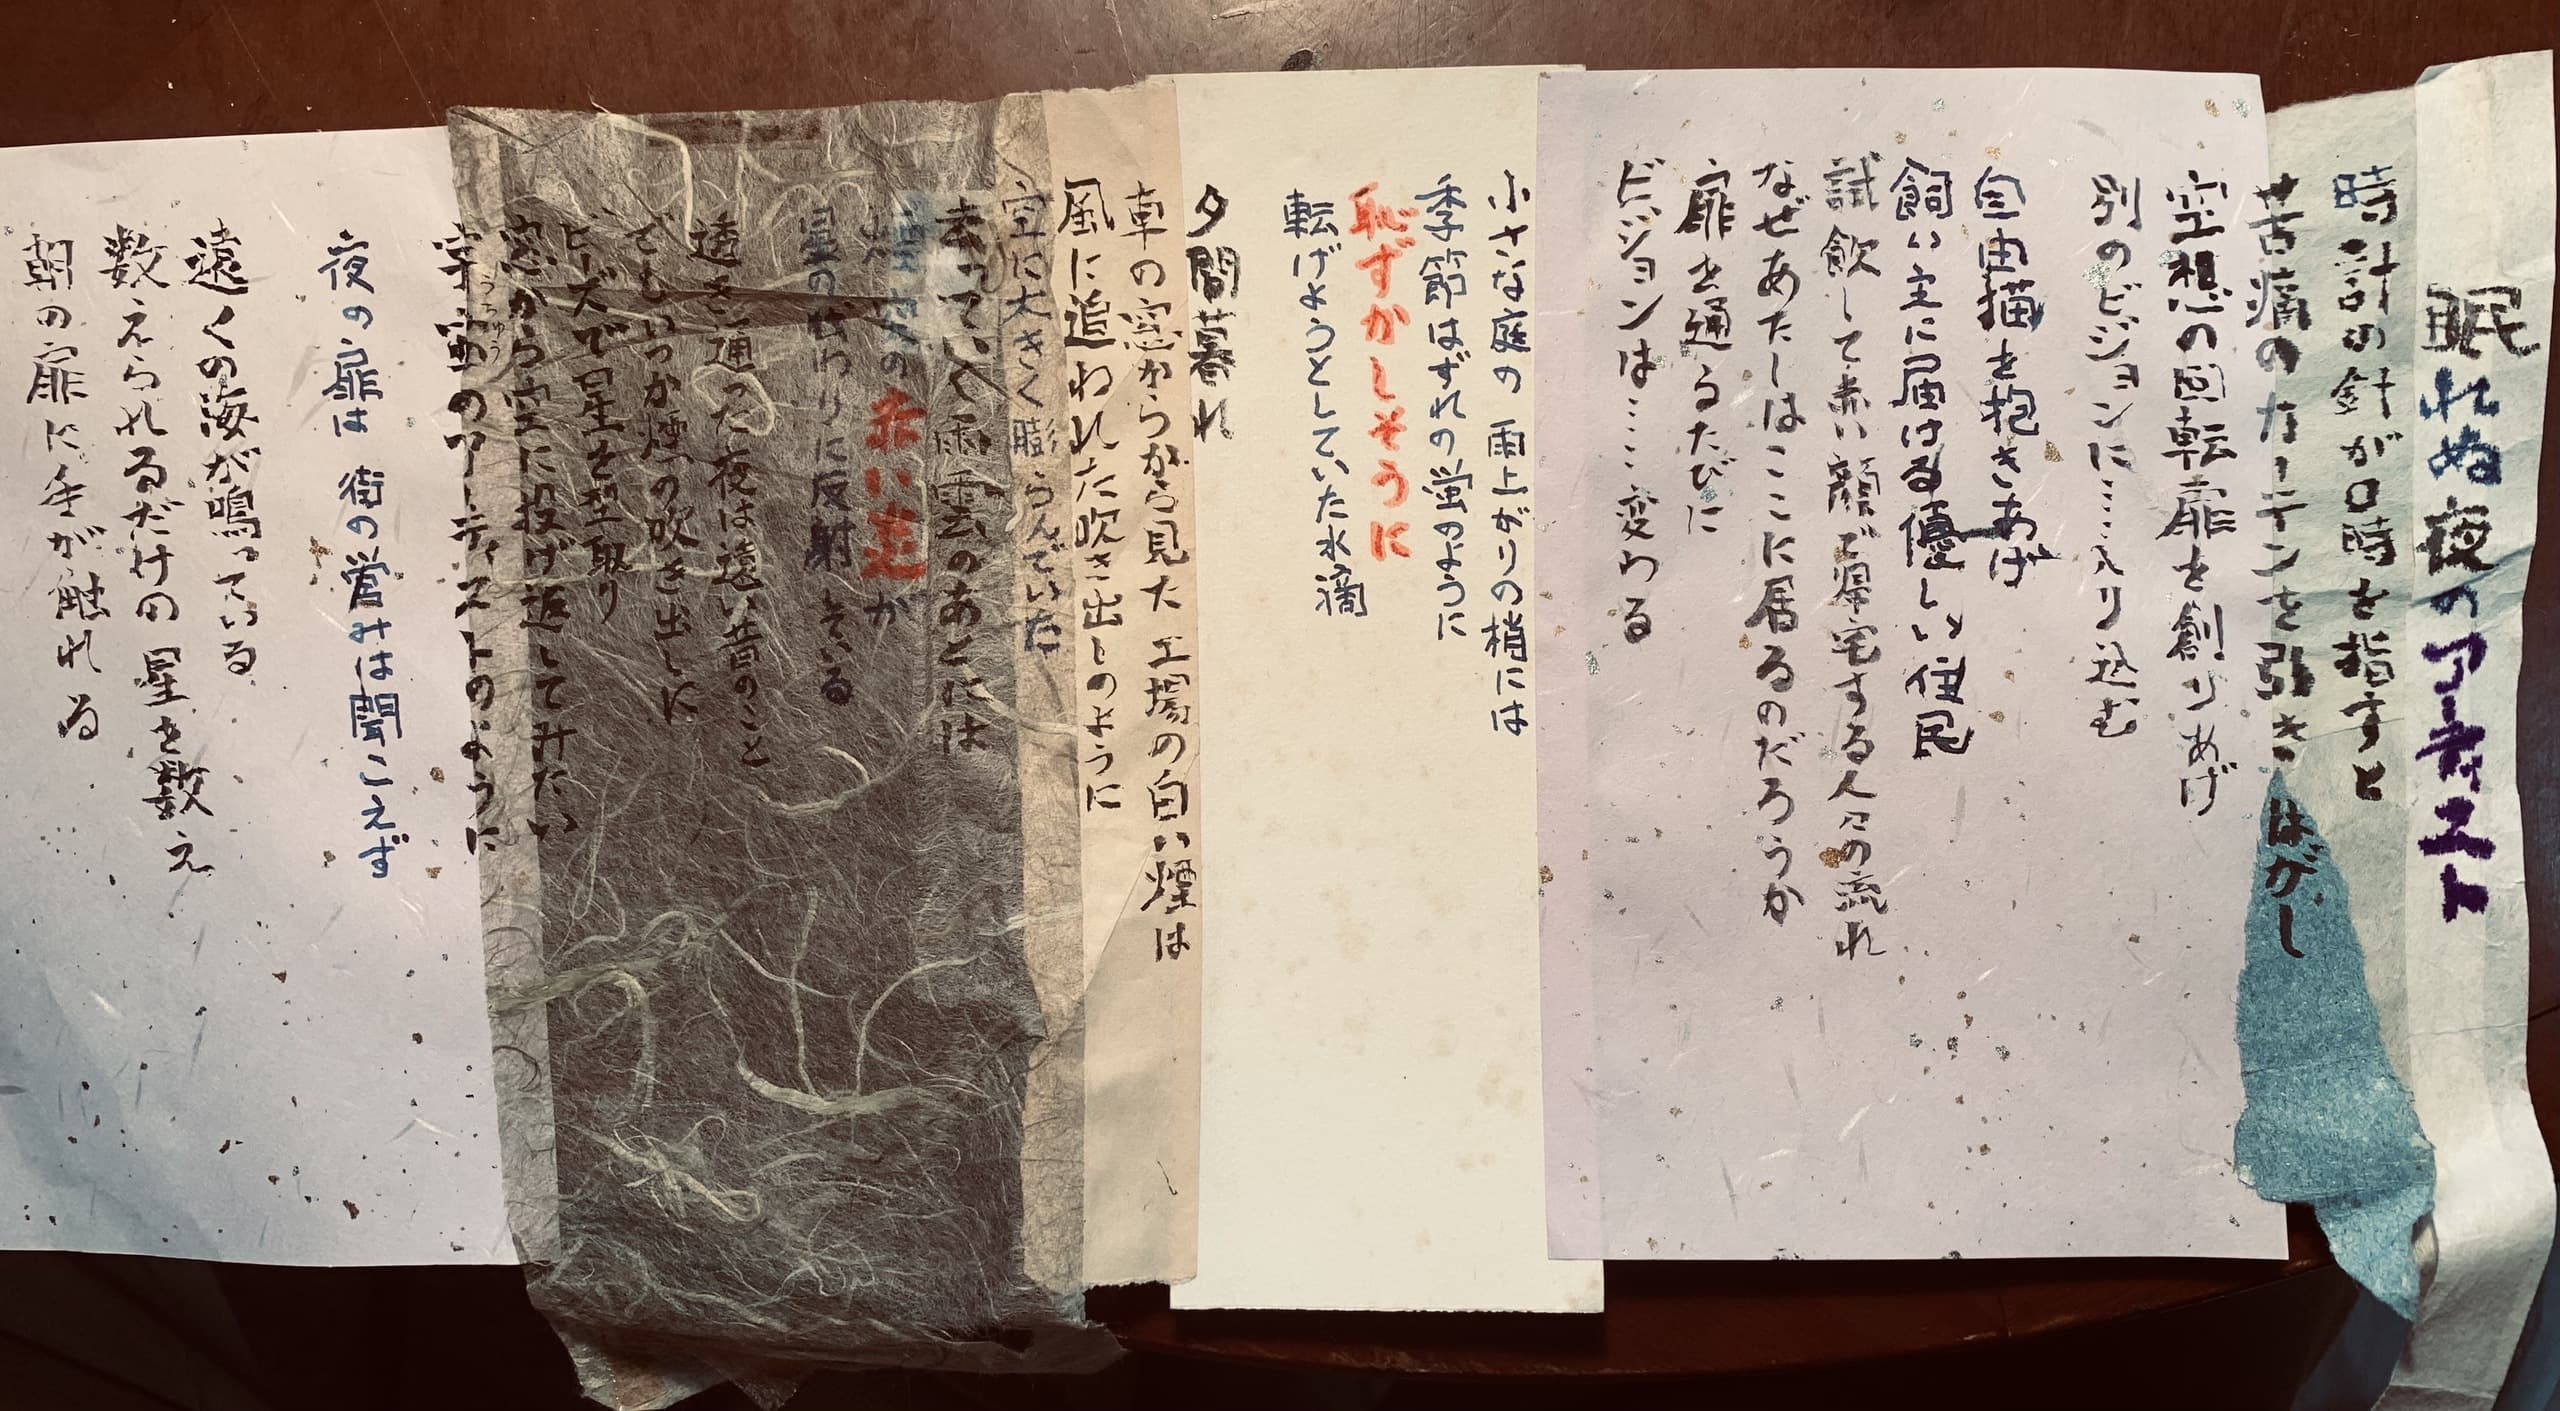 眠れぬ夜のアーティスト
時計の針が0時を指すと
苦痛のカーテンを引きはがし
空想の回転扉を創りあげ
別のビジョンに……入り込む
自由猫を抱きあげ
飼い主に届ける優しい住民
試飲して赤い顔で帰宅する人々の流れ
なぜあたしはここに居るのだろうか
扉を通るたびに
ビジョンは……変わる
小さな庭の雨上がりの樹には
季節はずれの蛍のように
恥ずかしそうに
転げようとしていた水滴
夕闇暮れ
車の窓からから見た工場の白い煙は
風に追われた吹き出しのように
空に大きく膨らんでいた
去っていく雨雲のあとには
の赤い光が
星の代わりに反射している
透き通った夜は遠い昔のこと
でもいつか煙の吹き出しに
ビーズで星を型取り
窓から空に投げ返してみたい
宇宙のアーティストのように
うちゅう
夜の扉は 街の営みは聞こえず
遠くの海が鳴っている
数えられるだけの星を数え
朝の扉に手が触れる